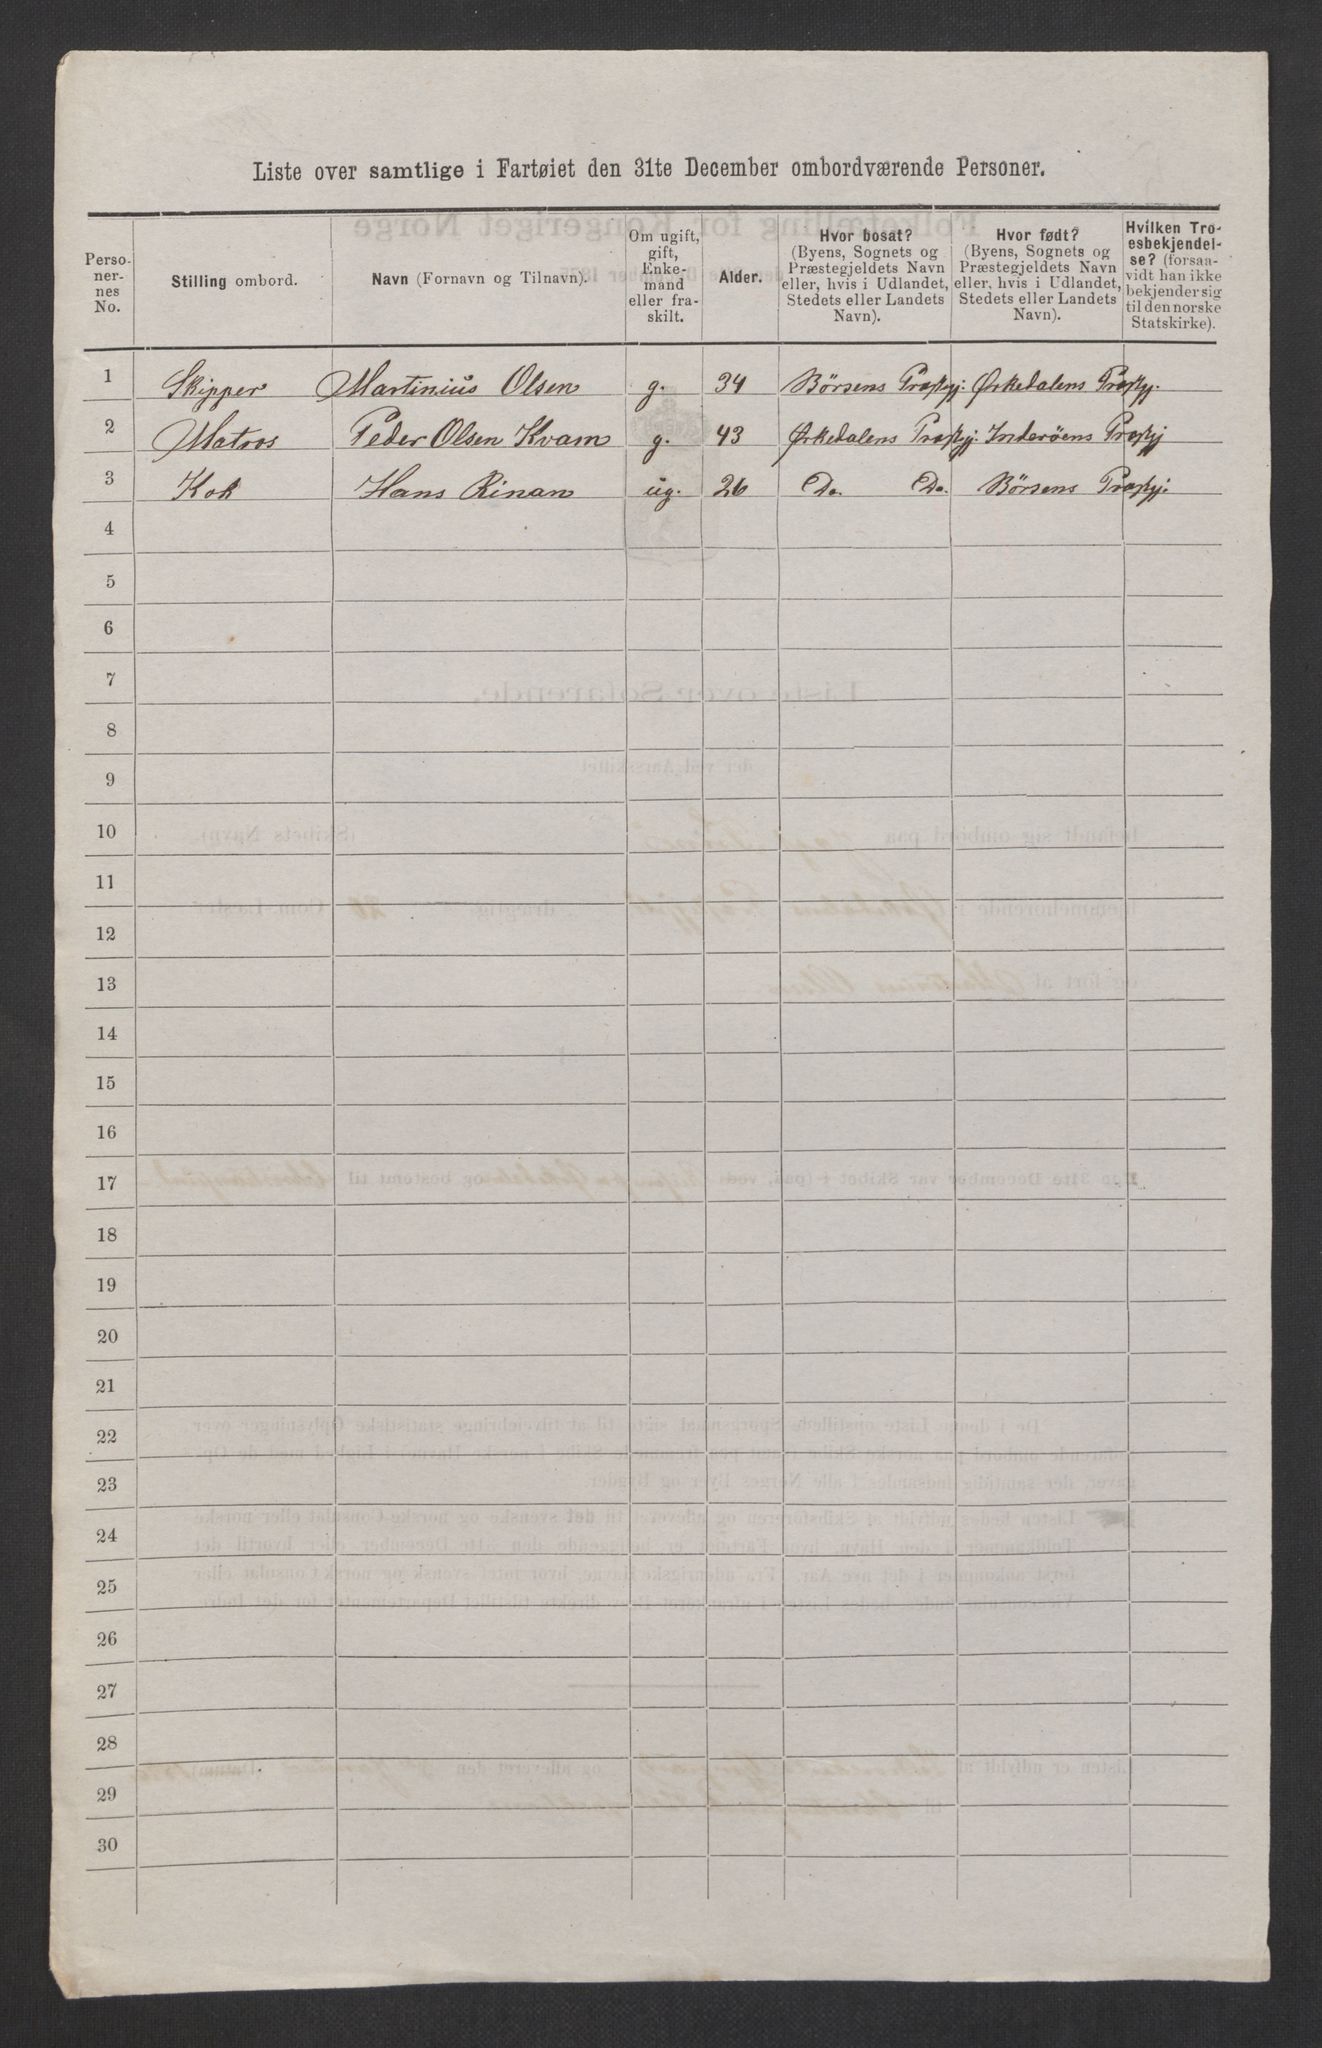 Liste over samtlige i Fartøiet den 31te December ombordværende Personer.
Perso-
ner-
nes
No.
Stilling ombord.
Navn (Fornavn og Tilnavn).
Om ugift,
gift,
Enke-
mand
eller fra-
skilt.
Alder.
Hvor bosat?
(Byens, Sognets og
Præstegjeldets Navn
eller, hvis i Udlandet,
Stedets eller Landets
Navn).
Hvor født?
(Byens, Sognets og
Præstegjeldets Navn
eller, hvis i Udlandet,
Stedets eller Landets
Navn).
Hvilken Tro-
esbekjendel-
se? (forsaa-
vidt han ikke
bekjender sig
til den norske
Statskirke).
1 Skipper Martinius Olsen g. 34 Børsens Præstgj: Ørkedalens Præstgj.
2 Matros Peder Olsen Kvam g. 43 Ørkedalens Præstgj: Inderöens Præstgj
3 Kok Hans Rinan ug. 26 Do. Do. Børsens Præstgj:
4
5
6
7
8
9
10
11
12
13
14
15
16
17
18
19
20
21
22
23
24
25
26
27
28
29
30